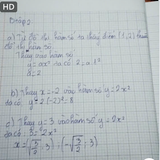 HD
Đáp
a) Từ đồ thị hàm số ta thấy điểm (1,2) thuộc
đồ thị hàm số
Thay vào hàm số
y = ax² ta có 2 = a.1²
a = 2
b) Thay x = -2 vào hàm số y = 2x²
ta có y = 2.(-2)² = 8
c) Thay y = 3 vào hàm số y = 2x²
ta có 3 = 2x²